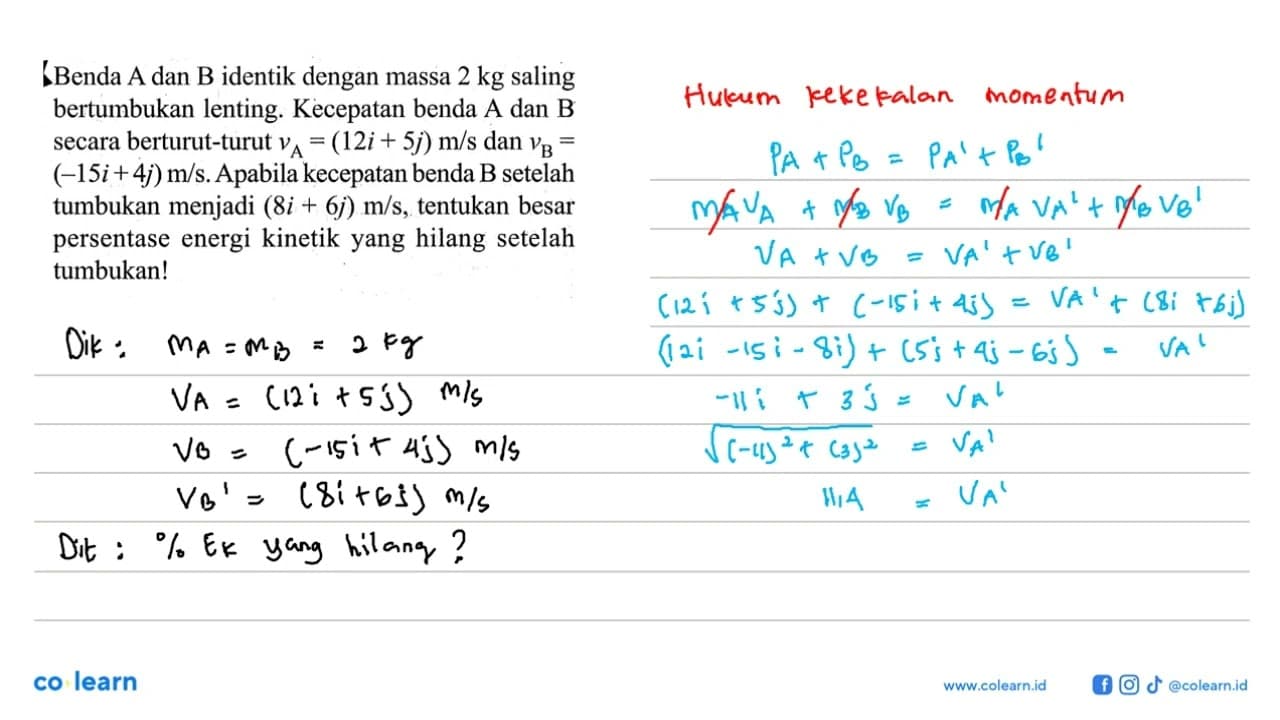 Benda A dan B identik dengan massa 2 kg saling
bertumbukan lenting. Kecepatan benda A dan B
secara berturut-turut v_A = (12i + 5j) m/s dan v_B =
(–15i + 4j) m/s. Apabila kecepatan benda B setelah
tumbukan menjadi (8i + 6j) m/s, tentukan besar
persentase energi kinetik yang hilang setelah
tumbukan!
Dik : mA = mB = 2 kg
VA = (12i + 5j) m/s
VB = (-15i + 4j) m/s
VB' = (8i + 6j) m/s
Dit : % Ek yang hilang ?
Hukum kekekalan momentum
PA + PB = PA' + PB'
mA VA + mB VB = mA VA' + mB VB'
VA + VB = VA' + VB'
(12i + 5j) + (-15i + 4j) = VA' + (8i + 6j)
(12i - 15i - 8i) + (5j + 4j - 6j) = VA'
-11i + 3j = VA'
√(-11)² + (3)² = VA'
11,4 = VA'
co learn
www.colearn.id
@colearn.id